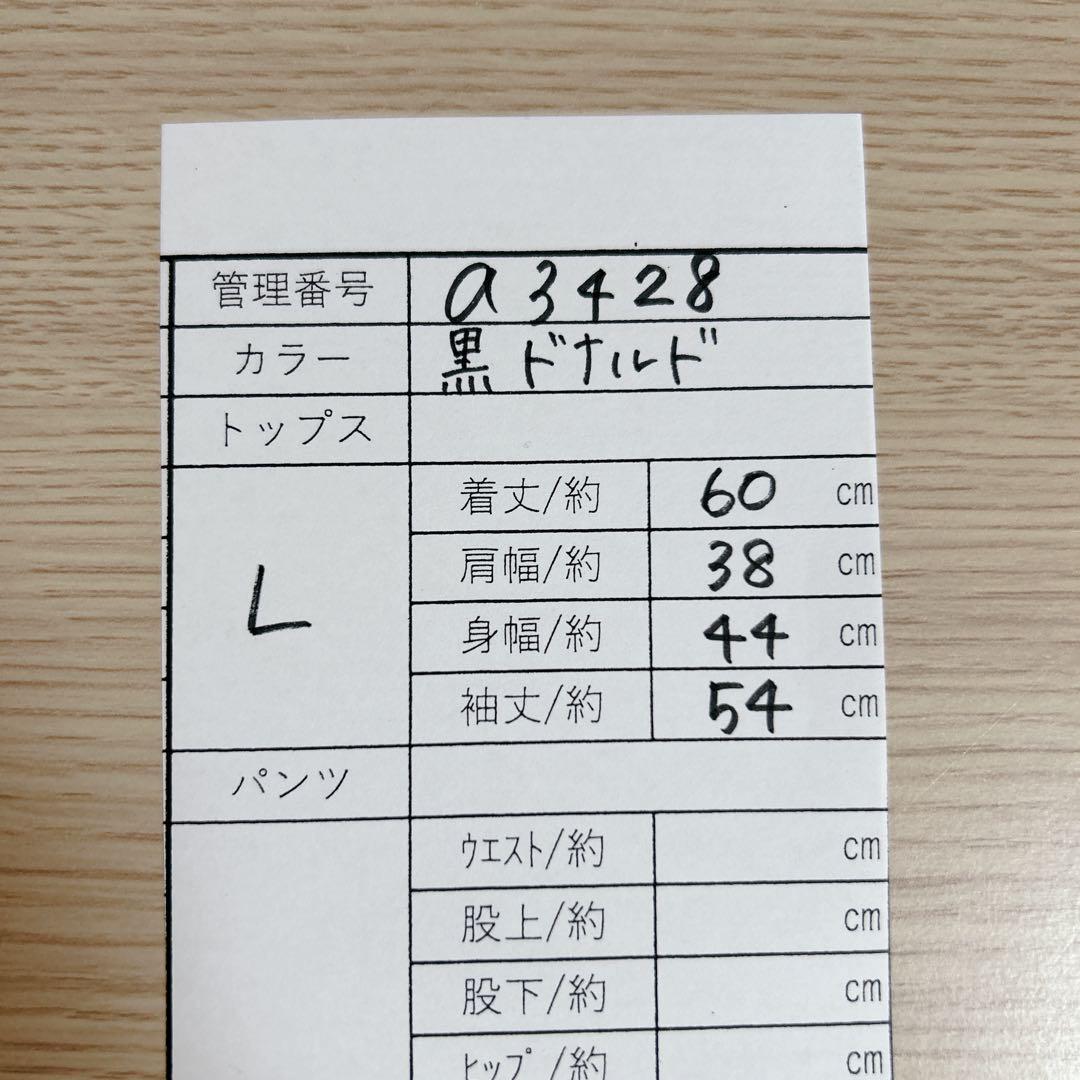 管理番号 a3428
カラー 黒 ドナルド
トップス
L
着丈/約 60 cm
肩幅/約 38 cm
身幅/約 44 cm
袖丈/約 54 cm
パンツ
ｳｴｽﾄ/約 cm
股上/約 cm
股下/約 cm
ﾋｯﾌﾟ/約 cm